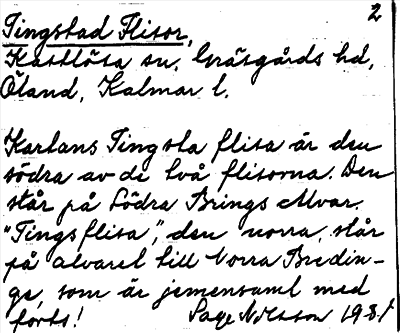 2
Tingstad Flisor,
Kastlösa sn. Gräsgårds hd,
Öland, Kalmar l.
Karlans Tingsta flisa är den
södra av de två flisorna. Den
står på Södra Brings Alvar.
"Tingsflisa", den norra, står
på alvaret till Norra Bredin-
ge, som är jemensamt med
förts! Sage Nilsson 1931